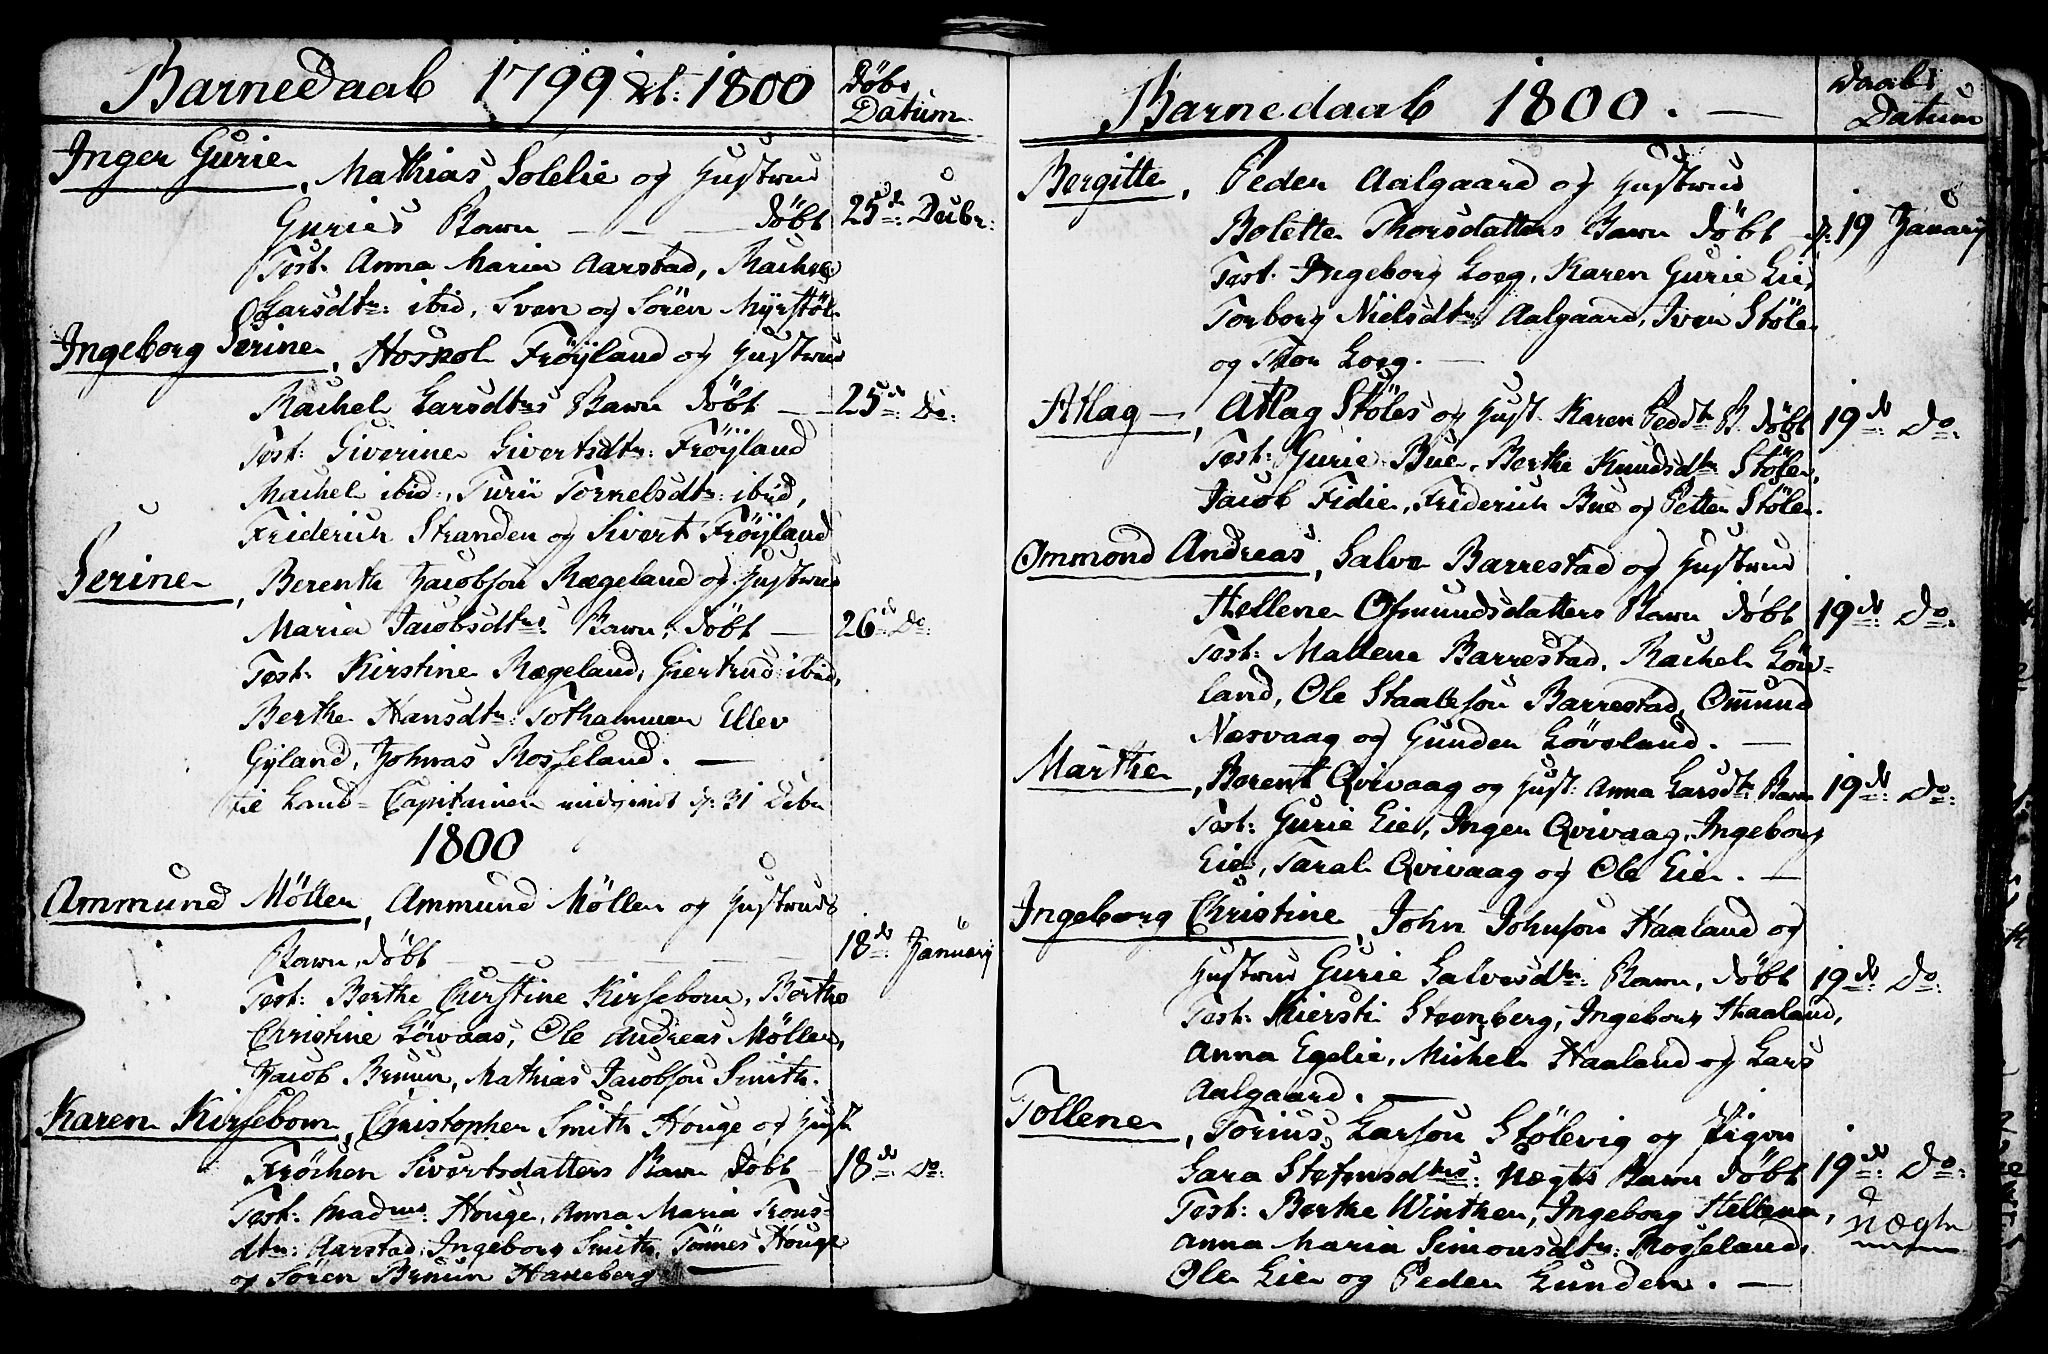 Barnedaab 1799 et 1800
Döbs
Datum
Inger Gurie, Mathias Solelie og Hustrud
Guries Barn — — — döbt 25de: Decbr:
Test. Anna Maria Aarstad, Rachel
Larsdtr: ibid, Sven og Sören Myrstöl
Ingeborg Serine, Hoskol Fröyland og Hustrud
Rachel Larsdtrs Barn döbt — 25de: Do:
Test: Siverine Sivertsdtr: Fröyland
Rachel ibid:, Turii Tornelsdtr: ibid,
Friderich Stranden og Sivert Fröyland
Serine, Berenth Jacobson Rægeland og Hustrud
Maria Jacobsdtrs: Barn, döbt — 26de: Do:
Test: Kirstine Rægeland, Giertrud ibid,
Berthe Hansdtr: Tothammer Ellev
Gyland, Johnas Rosseland. —
til Land-Capitainen indgivet d: 31 Decbr
1800
Ammund Möller, Ammund Möller og Hustruds
Barn, döbt — — — — — 18de: January
Test: Berthe Christine Kirsebom, Berthe
Christine Löwaas, Ole Andreas Möller,
Jacob Bruun, Mathias Jacobson Smith.
Karen Kirsebom, Christopher Smith Houge og Hust
Fröchen Sivertsdatters Barn Döbt — 18de: Do:
Test: Madme: Houge, Anna Maria Trons-
dtr: Aarstad, Ingeborg Smith, Tönnes Houge
og Sören Bruun Haneberg —
Barnedaab 1800. —
Daabs
Datum
Bergitte, Peder Aalgaard og Hustrud
Bolette Thorsdatters Barn Döbt d: 19 January
Test. Ingeborg Loeg, Karen Gurie Eie,
Torborg Nielsdtr, Aalgaard, Iver Stöle
og Thor Loeg. —
Atlag —, Atlag Stöles og Hust. Karen Peddtr B. döbt 19de: Do:
Test: Gurie Bue, Berthe Knudsdtr Stöle,
Jacob Fidie, Friderich Bue og Petter Stöle.
Ommond Andreas, Salve Barrestad og Hustrud
Hellene Osmundsdatters Barn Döbt 19de: Do:
Test: Mallene Barrestad, Rachel Löv-
land, Ole Staaleson Barrestad, Omund
Næsvaag og Gunder Lövland. —
Marthe, Berent Qvivaag og Hust: Anna Larsdtr: Barn 19de: Do:
Test: Gurie Eie, Inger Qvivaag, Ingeborg
Eie, Taral Qvivaag og Ole Eie. —
Ingeborg Christine, John Johnson Haaland og
Hustrud Gurie Salvesdtr: Barn, döbt 19de: Do:
Test: Kiersti Steenberg, Ingeborg Haaland,
Anna Egelie, Michel Haaland og Lars
Aalgaard. —
Tollene, Torius Larson Stölevig og Pigen
Sara Stefensdtrs: Uægte Barn Döbt 19de: Do:
Test: Berthe Winther, Ingeborg Helleren, uægte
Anna Maria Simonsdtr: Rosseland,
Ole Eie og Peder Lunden. —